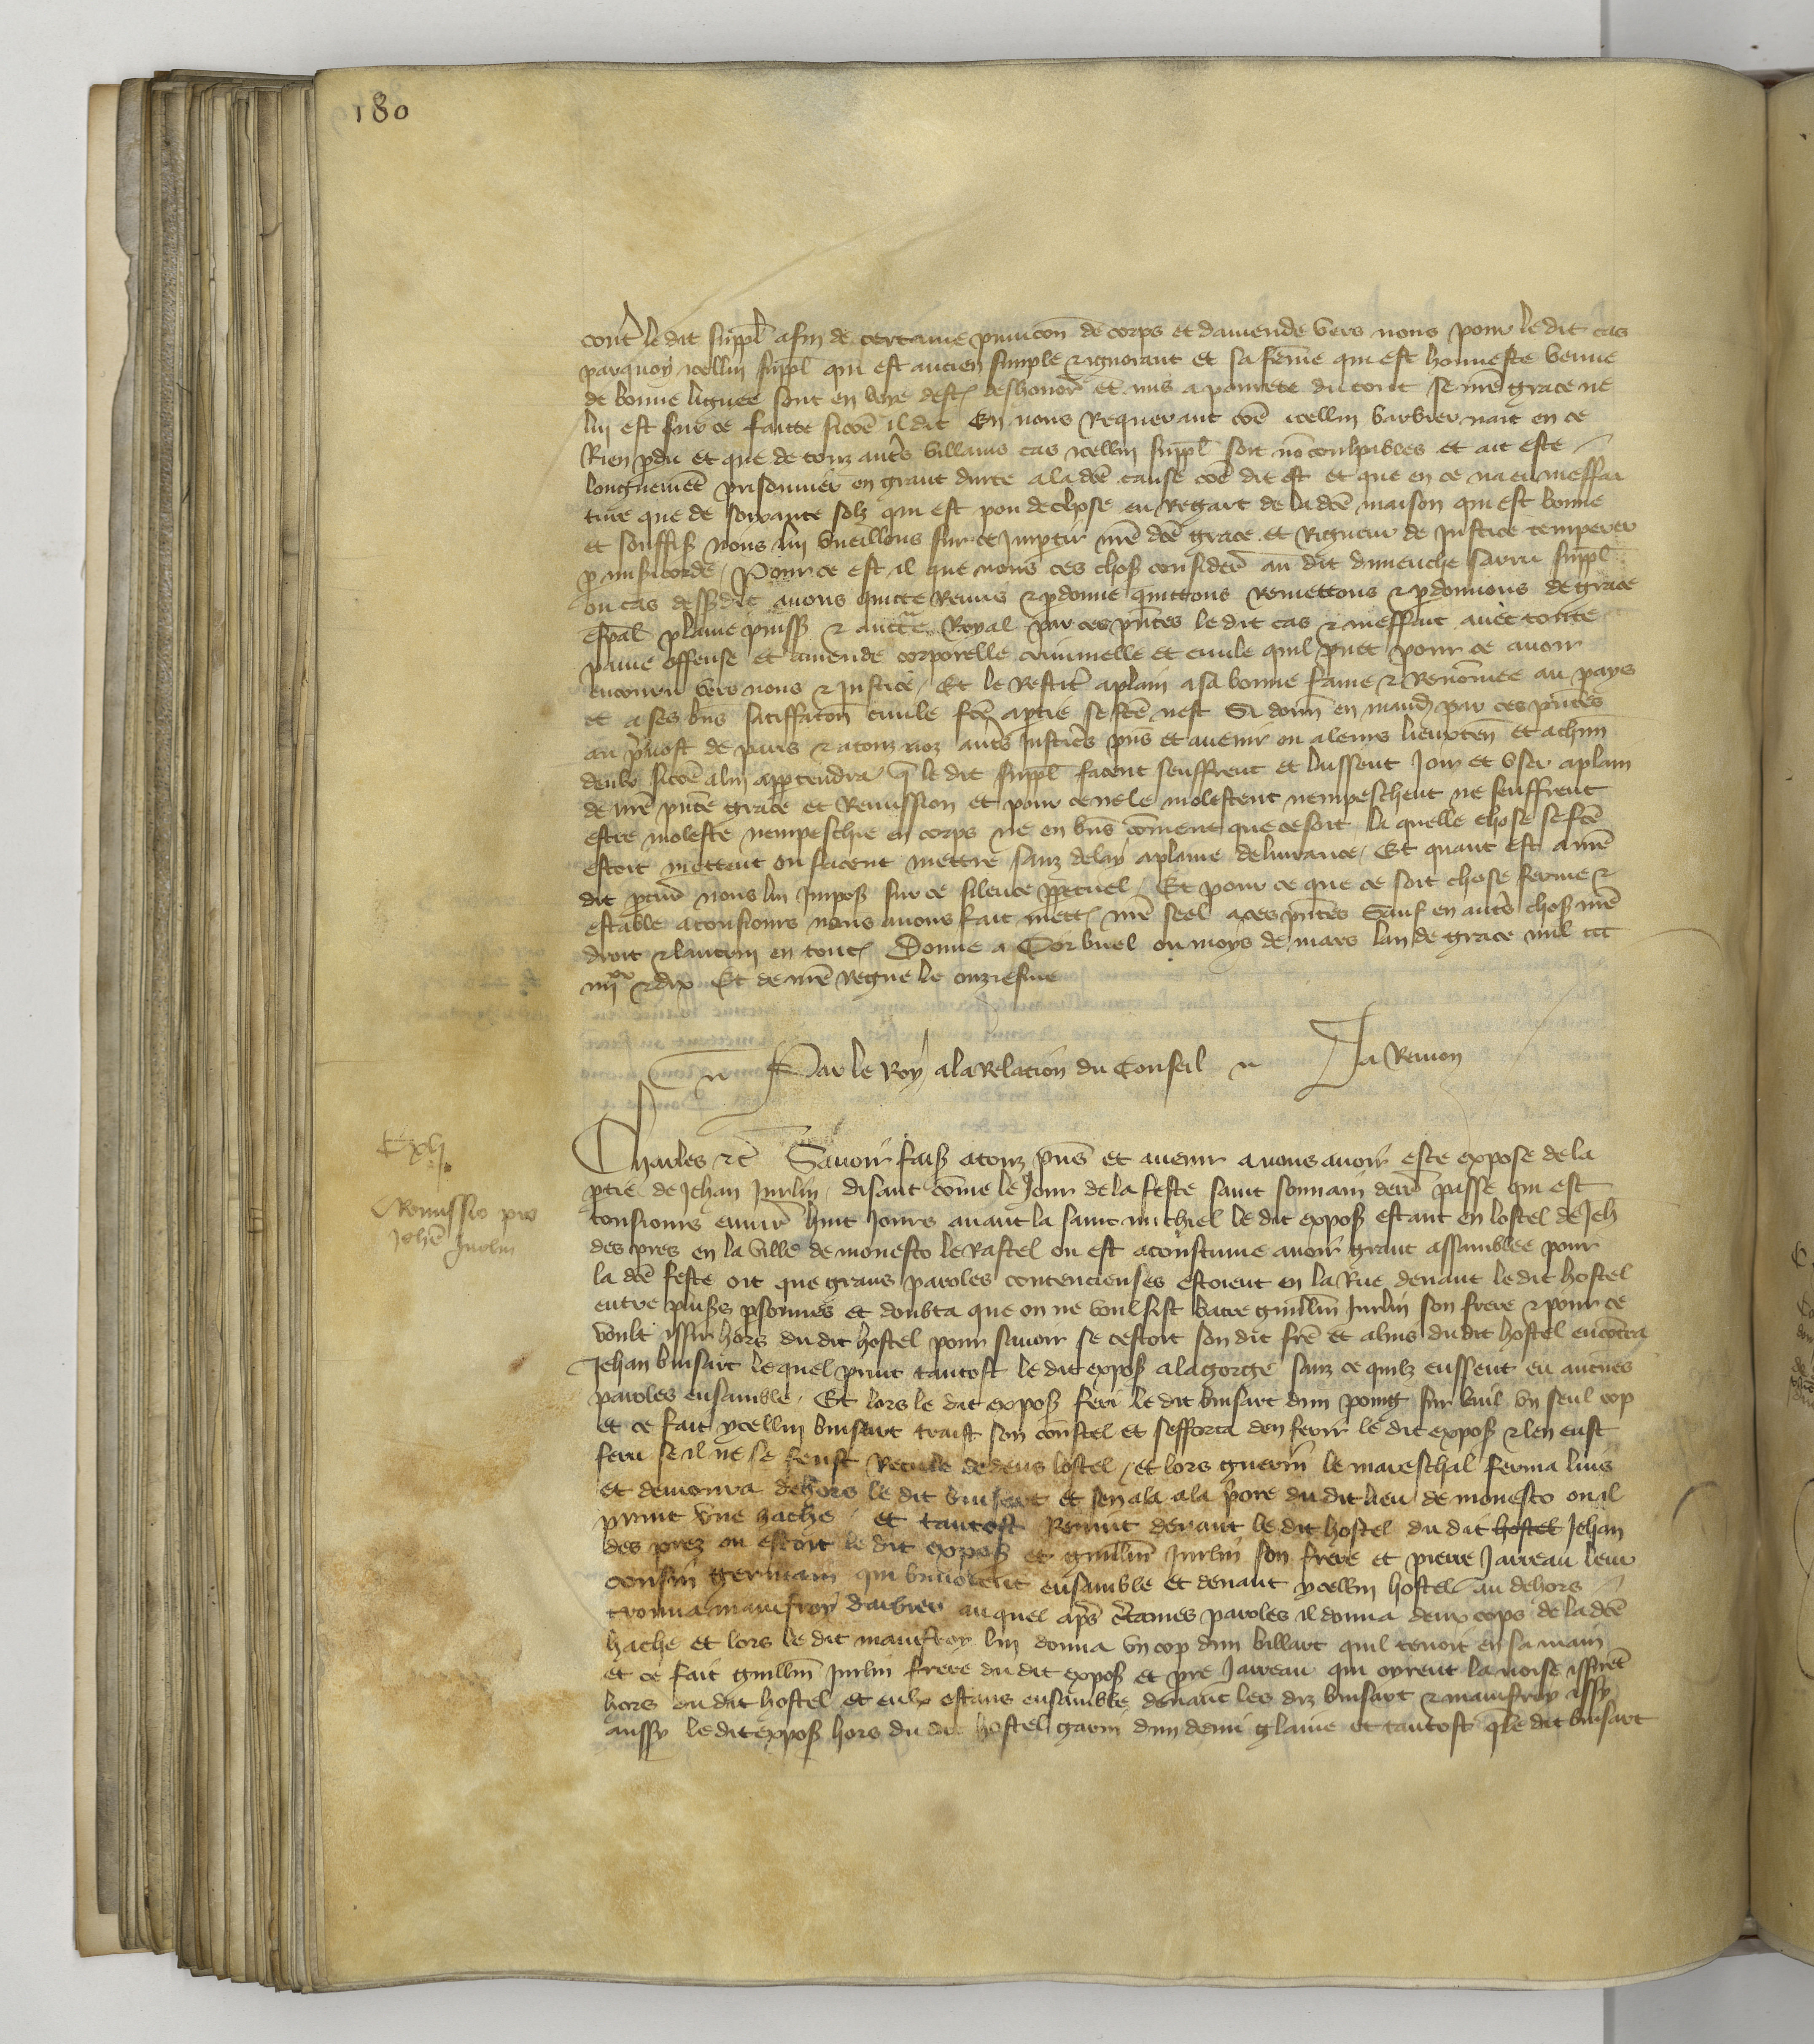 180
contre le dit suppl afin de certaine punicon de corps et damende vers nous pour le dit cas
parquoy icellui suppl qui est ancien simple et ignorant et sa feme qui est honneste venue
de bonne lignee sont en voye destre deshonorez et mis a povrete du tout se nre grace ne
lui est sur ce faicte sicoe il dit En nous Requerant coe icellui barbier nait en ce
Rien pdu et que de touz autres villains cas icellui suppl soit no coulpables et ait este
longuement prisonnier en grant durte a la dce cause coe dit est et que en ce na eu meffai
ture que de soixante solz qui est pou de chose eu Regart de la dce maison qui est bonne
et souffis Nous lui vueillons sur ce Impartir nre dce grace et Rigueur de Justice temperer
p misericorde / Pour ce est il que nous ces choses consideres au dit dimenche sarru suppl
ou cas dessusdit avons quicte Remis et pdonne quictons Remettons et pdonnons de grace
espal plaine puiss et auctte Royal par ces pntes le dit cas et meffait avec toute
paine offense et amende corporelle criminelle et civile quil puet pour ce avoir
encouru vers nous et Justice / Et le Restit aplain a sa bonne fame et Renommee au pays
et a ses bns satiffacon civile fce aptie se fce nest Si donn en mand par ces pntes
au prevost de paris et a touz noz autres Justicrs pns et avenir ou a leurs lieuxten et a chun
deulx sicoe a lui appartendra q le dit suppl facent seuffrent et laissent Joir et user aplain
de nre pnte grace et Remission et pour ce ne le molestent nempeschent ne seuffrent
estre moleste nempeschie en corps ne en bns coment que ce soit la quelle chose se fce
estoit mettent ou facent mettre sanz delay aplaine delivrance / Et quant est a nre
dit pcur nous lui Imposs sur ce silence ppetuel / Et pour ce que ce soit chose ferme et
estable a tousiours nous avons fait mettre nre seel a ces pntes Sauf en autres choses nre
droit et lautrui en toutes Donne a Corbueil ou moys de mars lan de grace mil ccc
iiijxx et dix Et de nre regne le onziesme
Par le Roy a la Relacion du Conseil Ja Remon
Charles etc Savoir faiss a touz pns et avenir a nous avoir este expose de la
ptie de Jehan Jurlin / disant come le Jour de la feste saint sonnain derr passe qui est
tousiours envir huit Jours avant la saint michiel le dit exposs estant en lostel de Jeh
des pres en la ville de monesto le Rastel ou est acoustume avoir grant assamblee pour
la dce feste oit que grans paroles contencieuses estoient en la Rue devant le dit hostel
entre pluss psonnes et doubta que on ne voulsist batre guillm Jurlin son frere et pour ce
voult issir hors du dit hostel pour savoir se cestoit son dit fre et a luis du dit hostel encontra
Jehan buisart lequel print tantost le dit exposs a la gorge sanz ce quilz eussent eu aucunes
paroles ensamble / Et lors le dit exposs feri le dit buisart dun poing sur luil un seul cop
et ce fait ycellui buisart traist son coustel et sefforca den ferir le dit exposs et len eust
feru se il ne se feust Recule dedens lostel / et lors guerin le mareschal ferma luis
et demoura dehors le dit buisart et sen ala a la pore du dit lieu de monesto ou il
print une hache / et tantost Revint devant le dit hostel du dit hostel Jehan
des prez ou estoit le dit exposs et guillm Jurlin son frere et pierre Jarreau leur
cousin germain qui buvoient ensamble et devant ycellui hostel au dehors
trouva mainfroy barbier auquel apres ctaines paroles il donna deux cops de la dce
hache et lors le dit mainfroy lui donna un cop dun billart quil tenoit en sa main
et ce fait guillm Jurlin frere du dit exposs et pre Jarreau qui oyrent la noise issirent
hors ou dit hostel et eulx estans ensamble devant les diz buisart et mainfroy issy
aussy le dit exposs hors du dit hostel garni dun demi glaive et tantost q le dit buisart
Remissio pro
Johe Jurlin